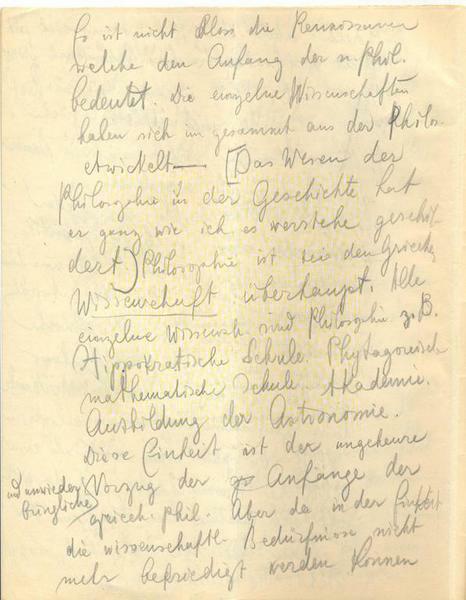 Es ist nicht bloss die Rennaissance
welche den Anfang der n. Phil.
bedeutet. Die einzelne Wissenschaften
haben sich im gesammt aus der Philos.
etwickelt — [Das Wesen der
Philosophie in der Geschichte hat
er ganz wie ich es werstehe geschil-
dert) Philosophie ist bei den Griechen
Wissenschaft überhaupt. Alle
einzelne Wissensch. sind Philosophie z. B.
Hippokratische Schule. Phytagoreisch
mathematische Schule. Akademie.
Ausbildung der Astronomie.
Diese Einheit ist der ungeheure
und unwieder Vorzug der Anfänge der
bringliche griech. phil. Aber da in der Einheit
die wissenschaftl. Bedürfnisse nicht
mehr befriedigt werden konnen